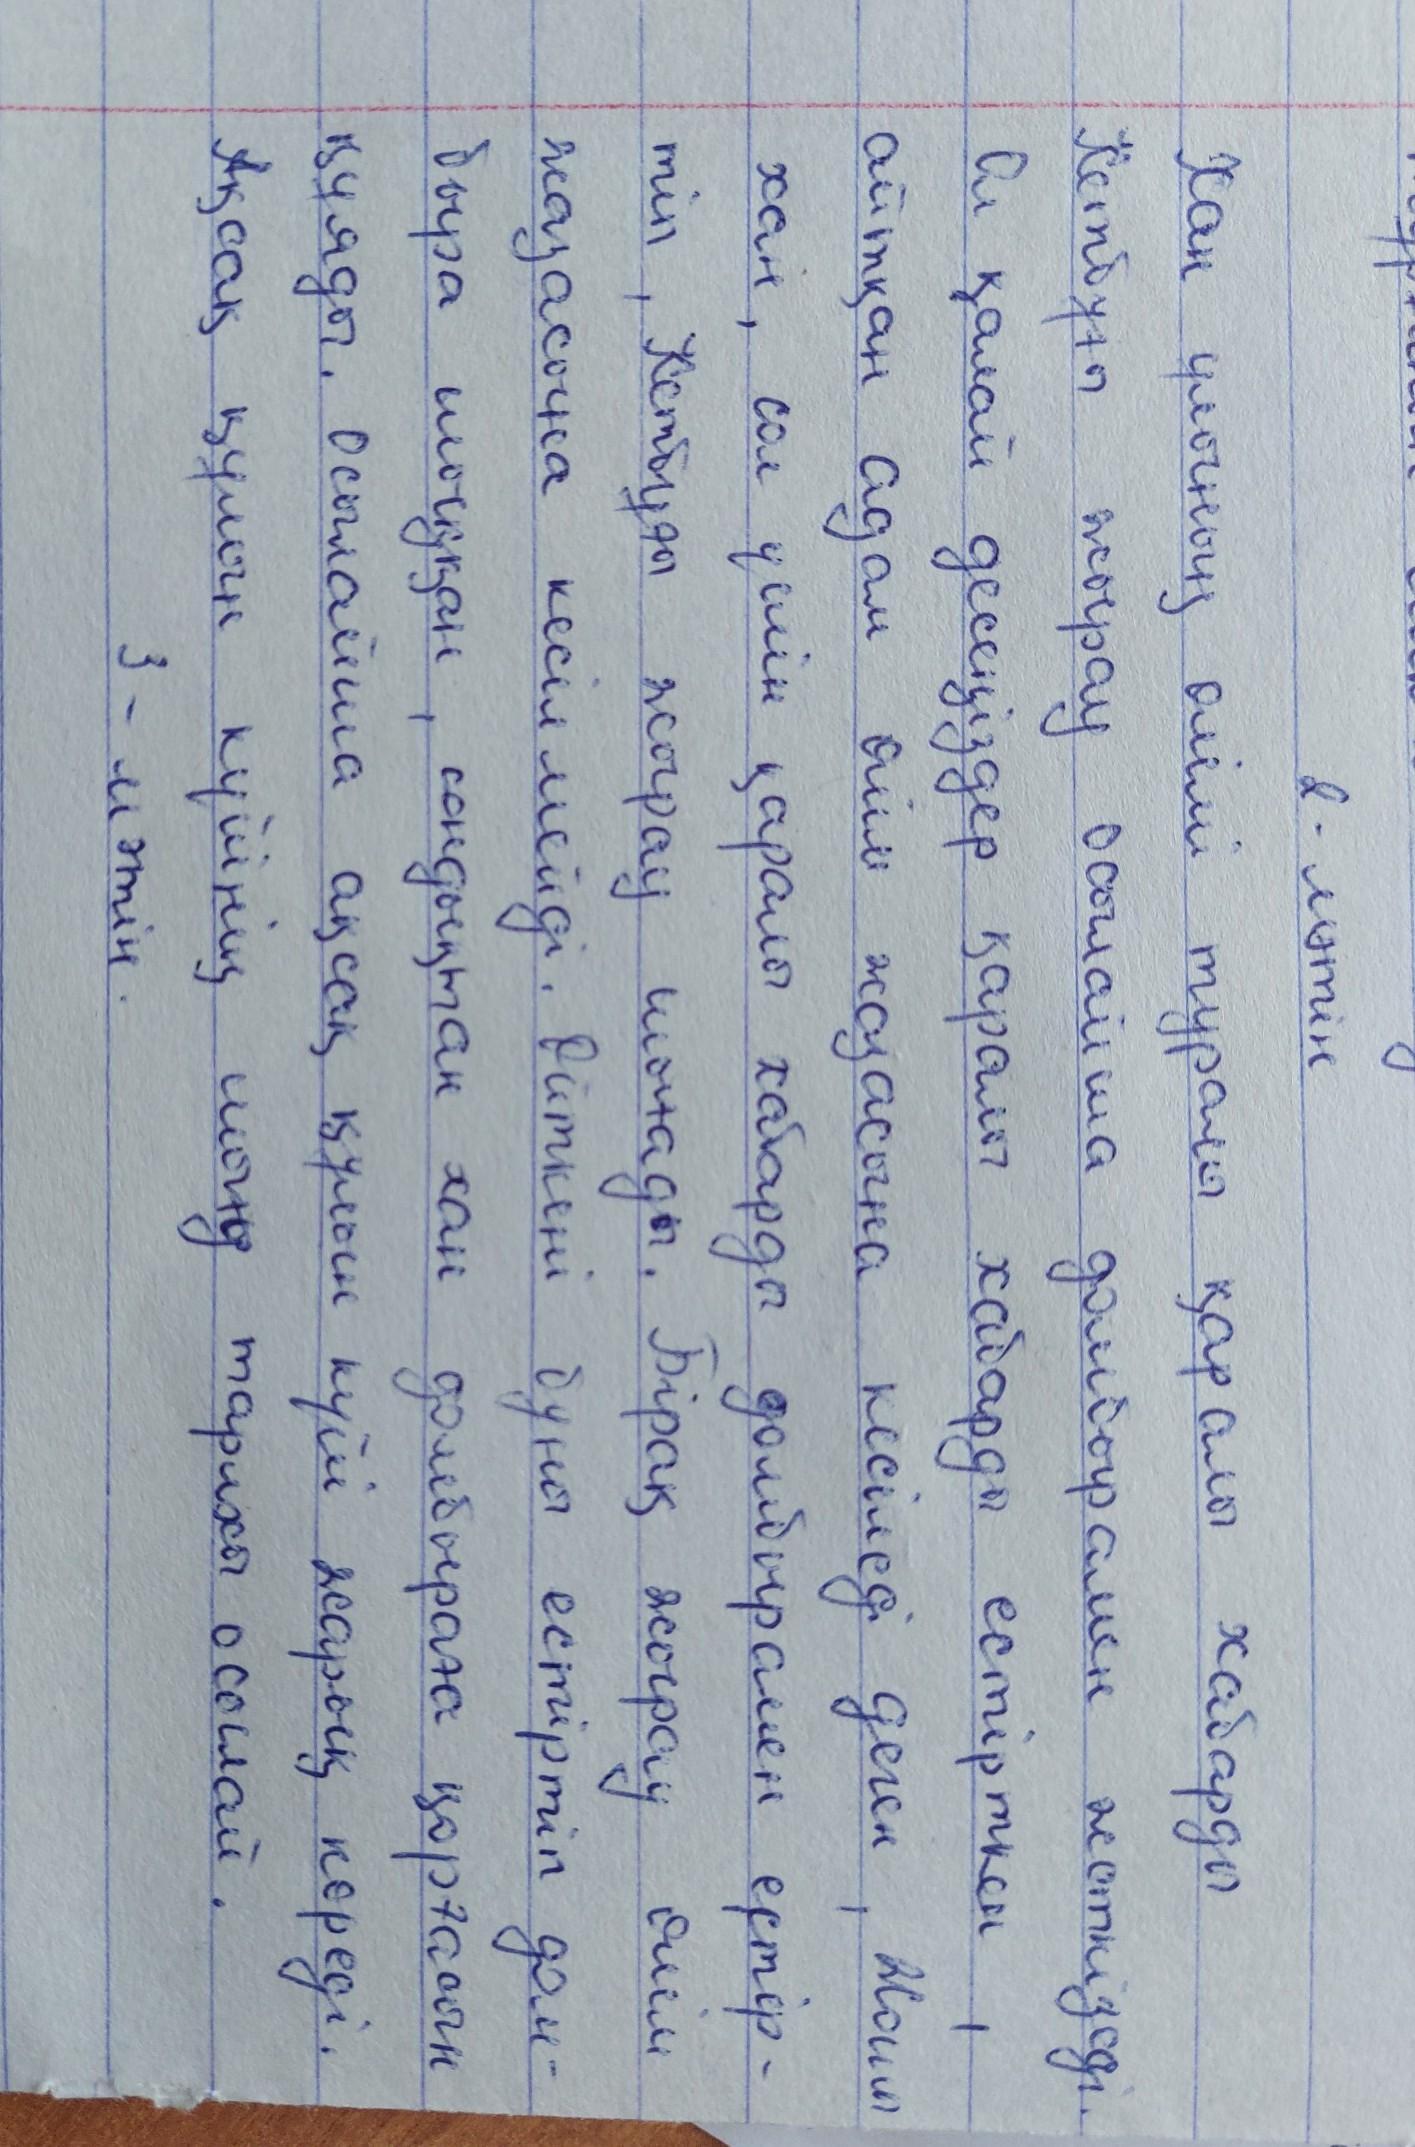 2-мәтін
Хан ұлының өлімі туралы қаралы хабарды
Кетбұғы жырау осылайша домбырамен жеткізеді.
Ал қалай десеңіздер қаралы хабарды естірткен,
айтқан адам өлім жазасына кесіледі деген, Жошы
хан, сол үшін қаралы хабарды домбырамен естір-
тіп, Кетбұғы жырау шығады. Бірақ жырау өлім
жазасына кесілмейді. Өйткені бұны естіртіп дом-
быра шыққан, сондықтан хан домбыраға қорғасын
құяды. Осылайша ақсақ құлан күйі жарық көреді.
Ақсақ құлан күйінің шығу тарихы осылай.
3-мәтін.